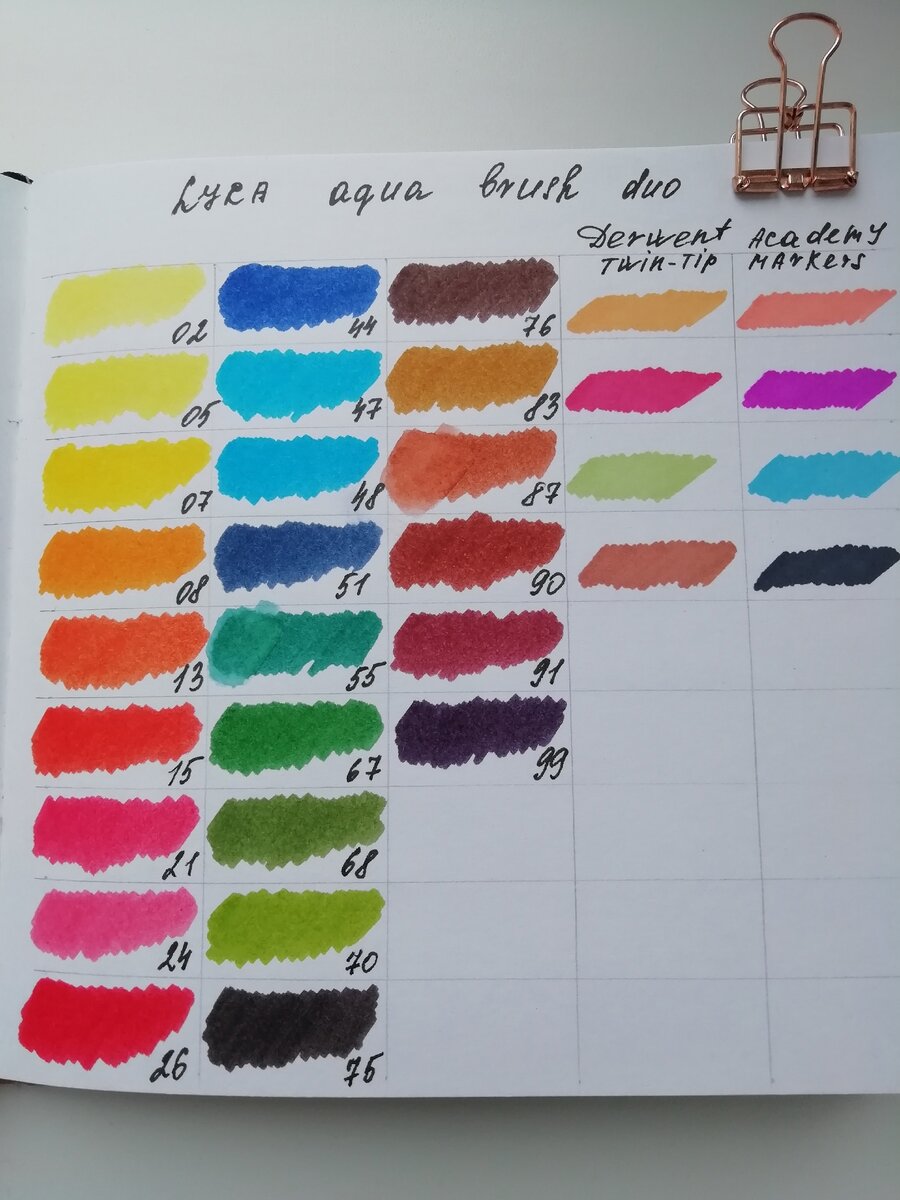 LYRA aqua brush duo
Derwent
Twin-Tip
Academy
Markers
02 44 76
05 47 83
07 48 87
08 51 90
13 55 91
15 67 99
21 68
24 70
26 75